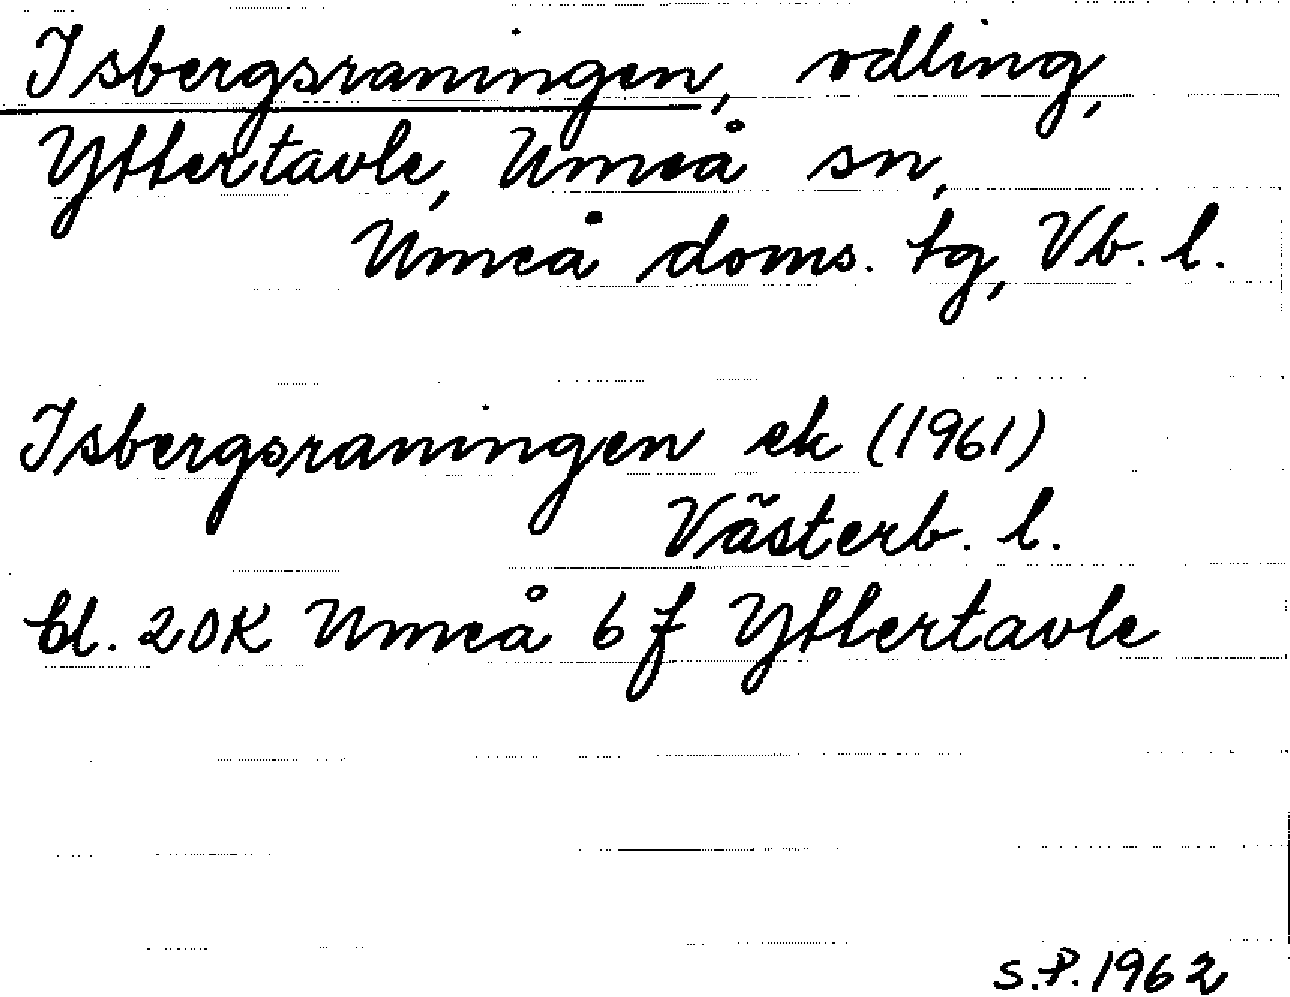 Isbergsraningen, odling,
Yttertavle, Umeå sn,
Umeå doms. tg, Vb. l.
Isbergsraningen ek (1961)
Västerb. l.
bl. 20K Umeå 6 f Yttertavle
S.P. 1962